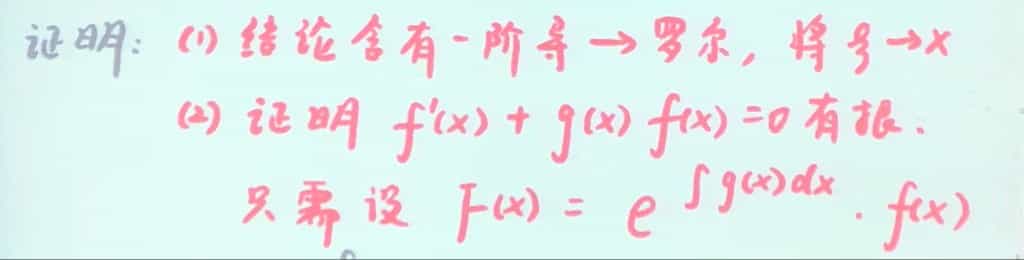 证明: (1) 结论含有一阶导→罗尔, 将ξ→x
(2) 证明 f'(x) + g(x) f(x) = 0 有根.
只需设 F(x) = e^{∫g(x)dx} · f(x)